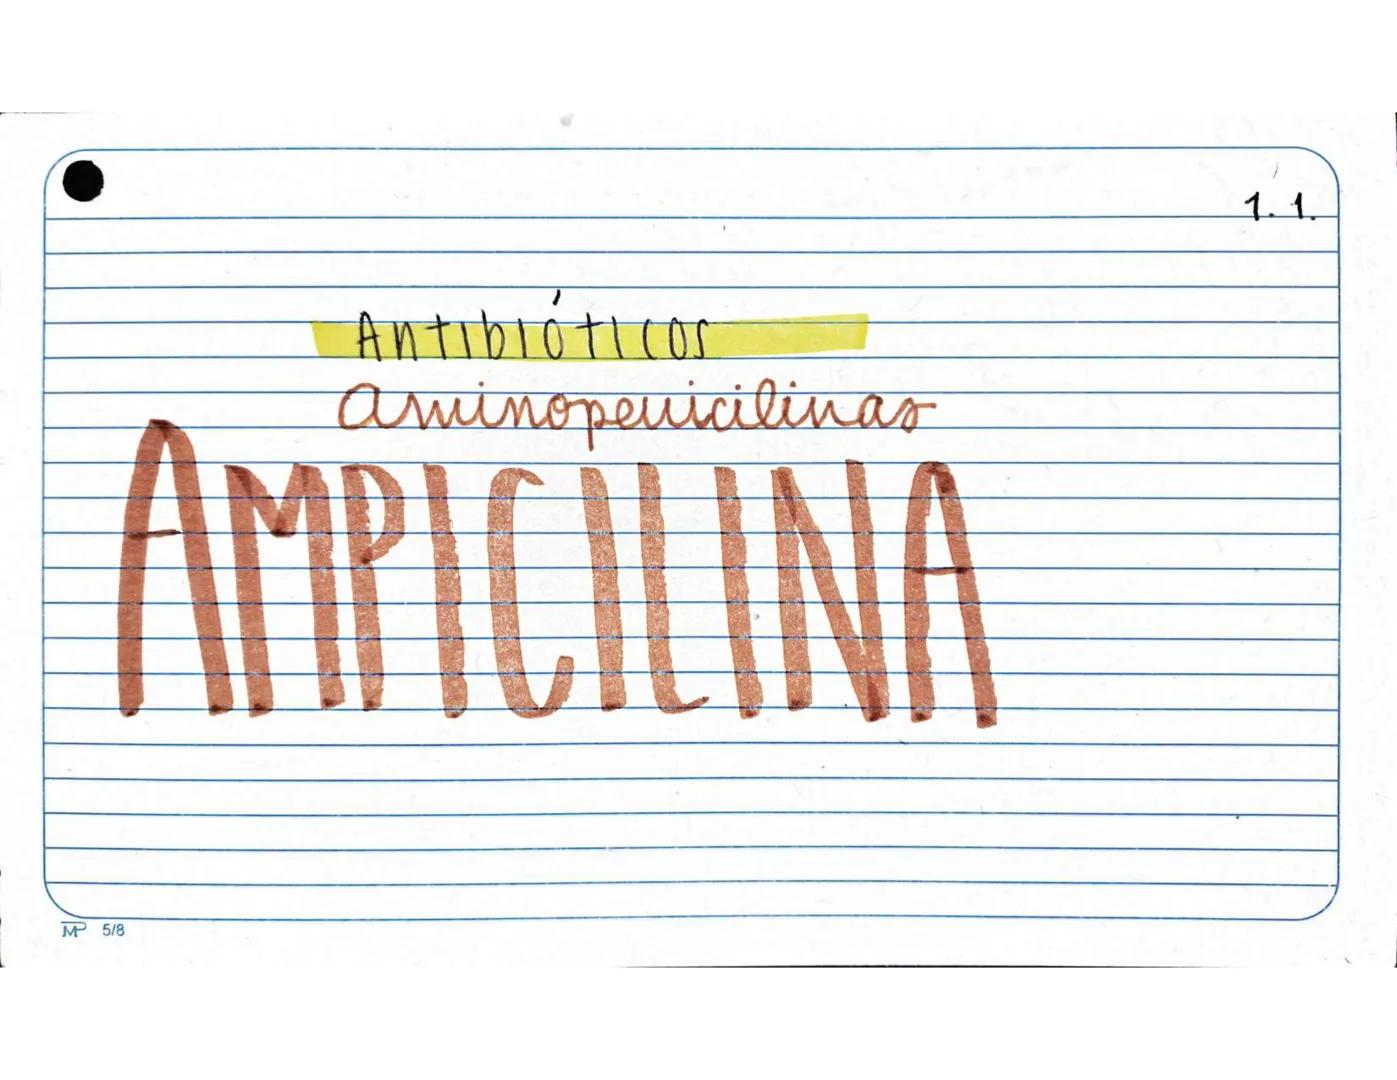 1. 1.
Antibióticos
Aminopenicilinas
AMPICILINA
MP 5/8